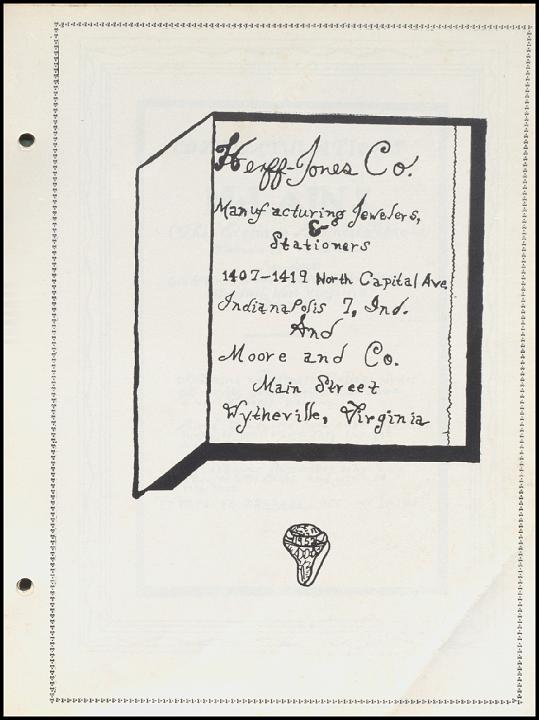 Herff-Jones Co.
Manufacturing Jewelers,
&
Stationers
1407-1419 North Capital Ave
Indianapolis 7, Ind.
And
Moore and Co.
Main Street
Wytheville, Virginia
1952